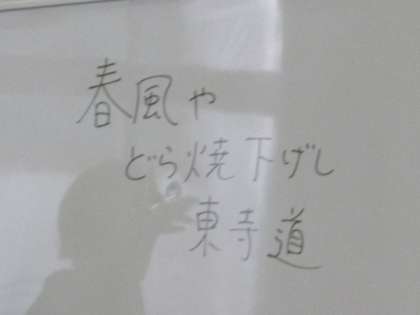 春風や
どら焼下げし
東寺道